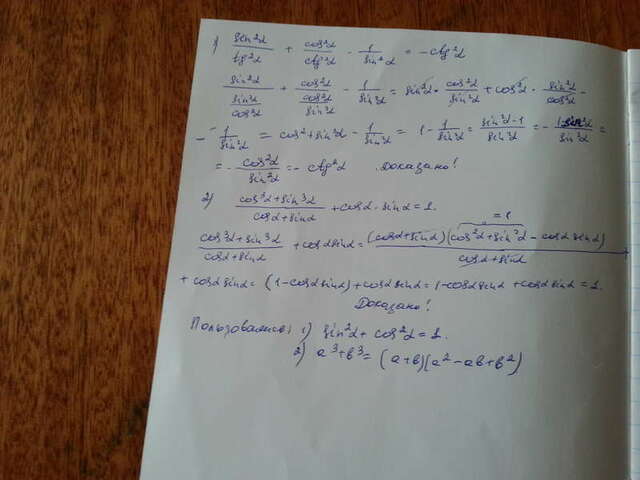 1) sin²α/tg²α + cos²α/ctg²α - 1/sin²α = -ctg²α
sin²α/(sin²α/cos²α) + cos²α/(cos²α/sin²α) - 1/sin²α = sin²α · cos²α/sin²α + cos²α · sin²α/cos²α -
- 1/sin²α = cos²α + sin²α - 1/sin²α = 1 - 1/sin²α = (sin²α - 1)/sin²α = - (1-sin²α)/sin²α =
= - cos²α/sin²α = - ctg²α Доказано!
2) (cos³α + sin³α)/(cosα + sinα) + cosα · sinα = 1.
= 1
(cos³α + sin³α)/(cosα + sinα) + cosα sinα = (cosα + sinα)(cos²α + sin²α - cosα sinα)/(cosα + sinα) +
+ cosα sinα = (1 - cosα sinα) + cosα sinα = 1 - cosα sinα + cosα sinα = 1.
Доказано!
Пользовались: 1) sin²α + cos²α = 1.
2) a³ + b³ = (a+b)(a² - ab + b²)